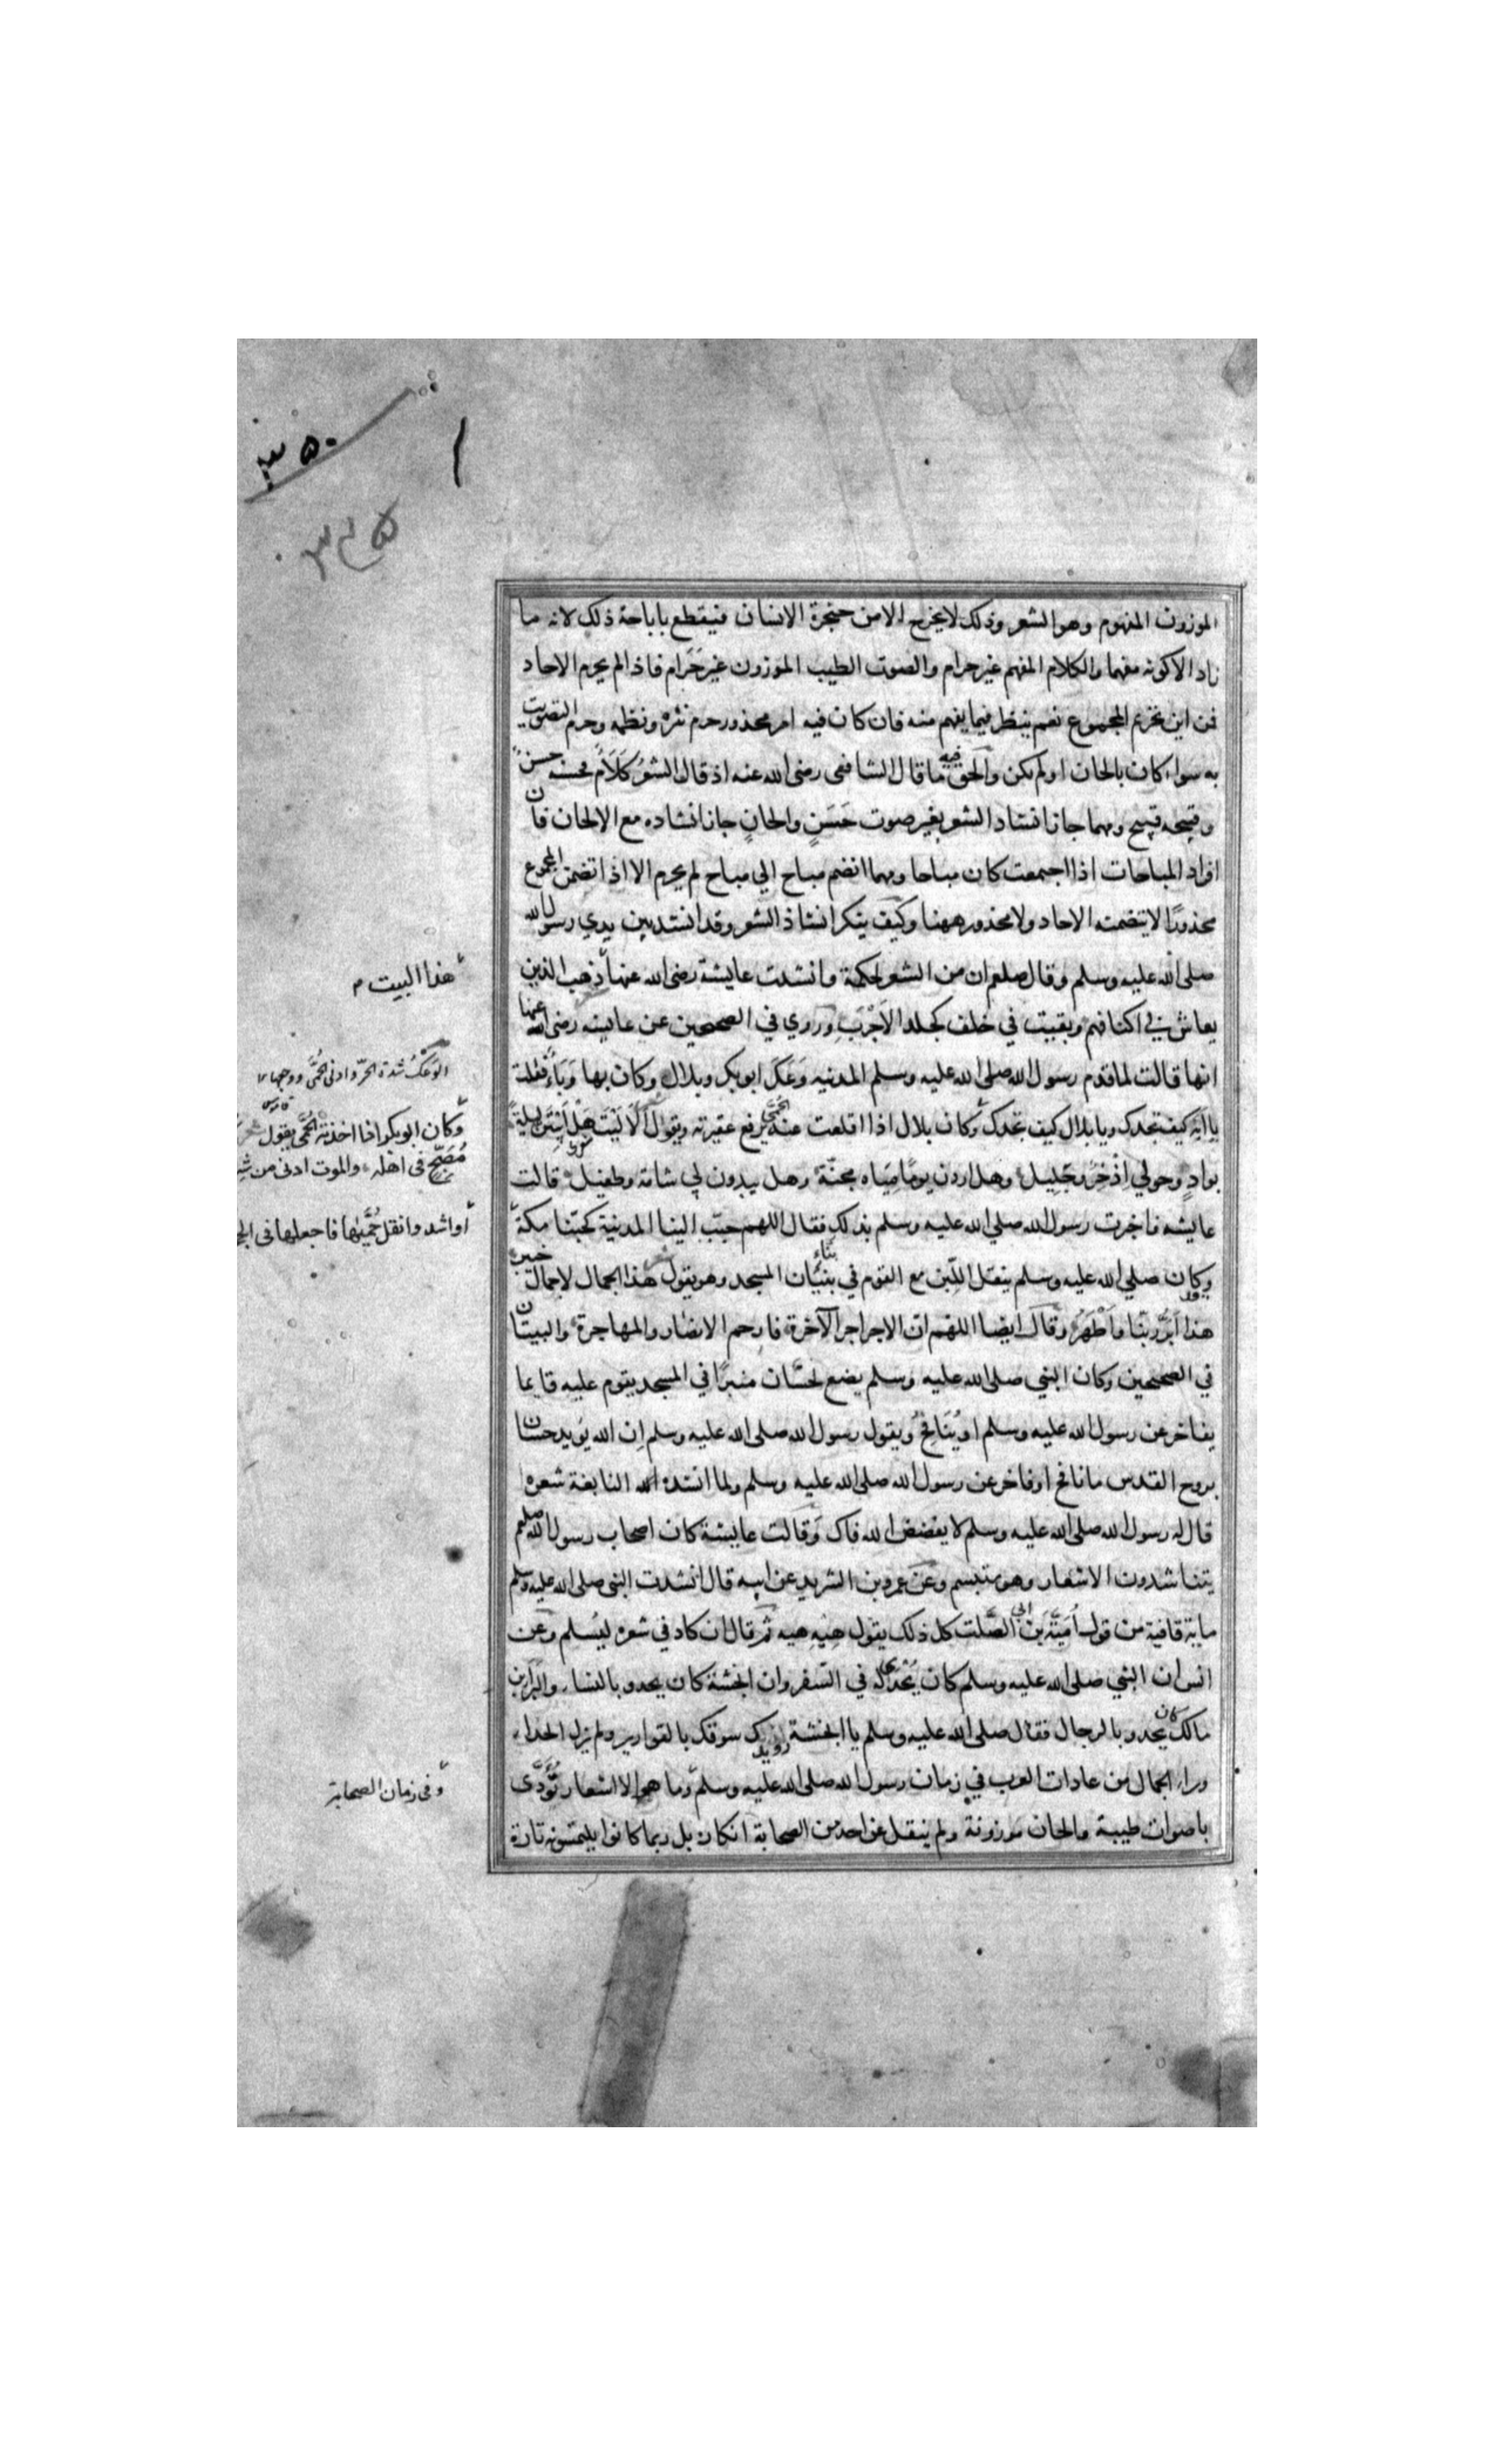 الموزون المفهوم وهو الشعر وذلك لا يخرج الا من حنجرة الانسان فيقطع باباحة ذلك لانه ما
زاد الا كونه مفهما والكلام المفهم غير حرام والصوت الطيب الموزون غير حَرَام فاذا لم يحرم الاحاد
فمن اين يحرم المجموع نعم ينظر فيما يفهم منه فان كان فيه امر محذور حرم نثره ونظمه وحرم التصويت
به سواء كان بالحان او لم يكن والحق فيه ما قال الشافعى رضى الله عنه اذ قال الشعرُ كَلَامٌ فحسنه حسنٌ
وقبيحه قبيح ومهما جاز انشاد الشعر بغير صوت حَسَنٍ والحانٍ جاز انشاده مع الالحان فان
افراد المباحات اذا اجتمعت كان مباحا ومهما انضم مباح الي مباح لم يحرم الا اذا تضمن المجموع
محذورًا لا يتضمنه الاحاد ولا محذور ههنا وكيف ينكر انشاذ الشعر وقد انشد بين يدي رسول الله
صلى الله عليه وسلم وقال صلعم ان من الشعر لحكمة وانشدت عايشة رضى الله عنها ذهب الذين
يعاش في اكنافهم وبقيت في خلف كجلد الاَجْرَبِ وروي في الصحيحين عن عايشه رضى الله عنها
انها قالت لما قدم رسول الله صلى الله عليه وسلم المدنيه وَعَكَ ابو بكر وبلال وكان بها وَبَاءٌ فقلت
يا ابَه كيف تجدك ويا بلال كيف تجدك وكان بلال اذا اقلعت عنه الحُمّى يرفع عقيرته ويقول اَلَا لَيْتَ هَلْ اَبِيتَنَّ ليلةً
بوادٍ وحولي اِذْخِرُ وجَلِيل وهل اردن يومًا مِيَاه مجنّة وهل يبدون لي شامة وطفيل قالت
عايشه فاخبرت رسول الله صلي الله عليه وسلم بذلك فقال اللهم حبّب الينا المدنية كحبّنا مكة
وكان صلي الله عليه وسلم ينقل اللَّبِن مع القوم في بناء بنيان المسجد وهو يقول هذا الجمال لاجمال خيبر
هذا اَبَرُّ ربّنا واَطْهَرُ وقال ايضا اللهم ان الاجر اجر الآخرة فارحم الانصار والمهاجرة والبيتان
في الصحيحين وكان النبي صلى الله عليه وسلم يضع لحسَّان منبرًا في المسجد يقوم عليه قايما
يفاخر عن رسول الله عليه وسلم او يُنَافِحُ ويقول رسول الله صلى الله عليه وسلم اِن الله يؤيد حسان
بروح القدس ما نافح او فاخر عن رسول الله صلى الله عليه وسلم ولما انشده النابغة شعره
قال له رسول الله صلى الله عليه وسلم لا يفضض الله فاك وقالت عايشة كان اصحاب رسول الله صلعم
يتناشدون الاشعار وهو يتبسم وعن عمرو بن الشريد عن ابيه قال انشدت النبى صلى الله عليه وسلم
ماية قافية من قول اُمَيَّة بن ابى الصَّلت كل ذلك يقول هِيْهِ هِيه ثم قال ان كاد في شعره ليُسلم وعن
انس ان النبي صلى الله عليه وسلم كان يُحْدَى له في السّفر وان انجشة كان يحدو بالنساء والبراء بن
مالك كان يحدو بالرجال فقال صلى الله عليه وسلم يا انجشة رويدك سوقك بالقوارير ولم يزل الحداء
وراء الجمال من عادات العرب في زمان رسول الله صلى الله عليه وسلم وما هو الا اشعار تُؤَدَّى
باصوات طيبة والحان موزونة ولم ينقل عن احد من الصحابة انكاره بل ربما كانوا يلتمسونه تارة
هذا البيت م
الوَعَكُ شدة الحَرّ وادنى الحُمَّى ووجعها
قاموس
وكان ابو بكر اذا اخذته الحُمَّى يقول
مُصَبَّحٌ فى اهله والموت ادنى من
او اشد وانقل حُمَّيٰها فاجعلها فى
وفى زمان الصحابة